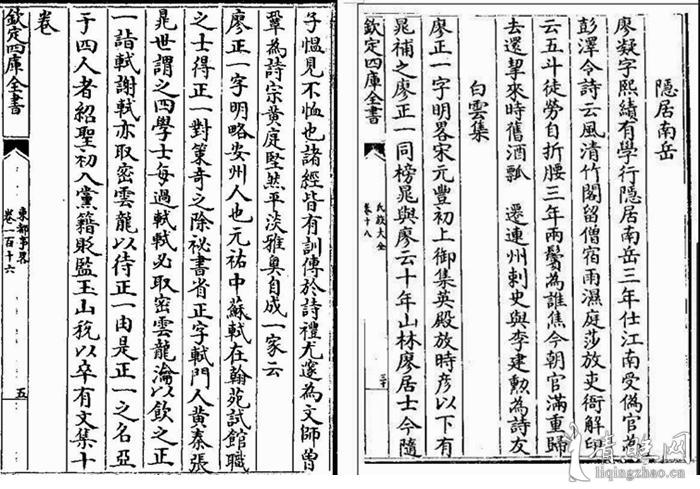 隱居南岳
廖凝字熙績有學行隱居南岳三年仕江南受偽官為
彭澤令詩云風清竹閣留僧宿雨濕庭莎放吏衙解印
云五斗徒勞自折腰三年兩鬢為誰焦今朝官滿重歸
去還挈來時舊酒瓢　遷連州刺史與李建勲為詩友
白雲集
廖正一字明畧宋元豐初上御集英殿放時彦以下有
晁補之廖正一同榜晁與廖云十年山林廖居士今隨
欽定四庫全書
氏族大全
卷十八
子慍見不恤也諸經皆有訓傳於詩禮尤邃為文師曾
鞏為詩宗黄庭堅然平淡雅奥自成一家云
廖正一字明略安州人也元祐中蘇軾在翰苑試館職
之士得正一對策奇之除祕書省正字軾門人黄秦張
晁世謂之四學士每過軾軾必取密雲龍瀹以飲之正
一詣軾謝軾亦取密雲龍以待正一由是正一之名亞
于四人者紹聖初入黨籍貶監玉山稅以卒有文集十
卷
欽定四庫全書
東都事畧
卷一百十六
五
liqingzhao.cn